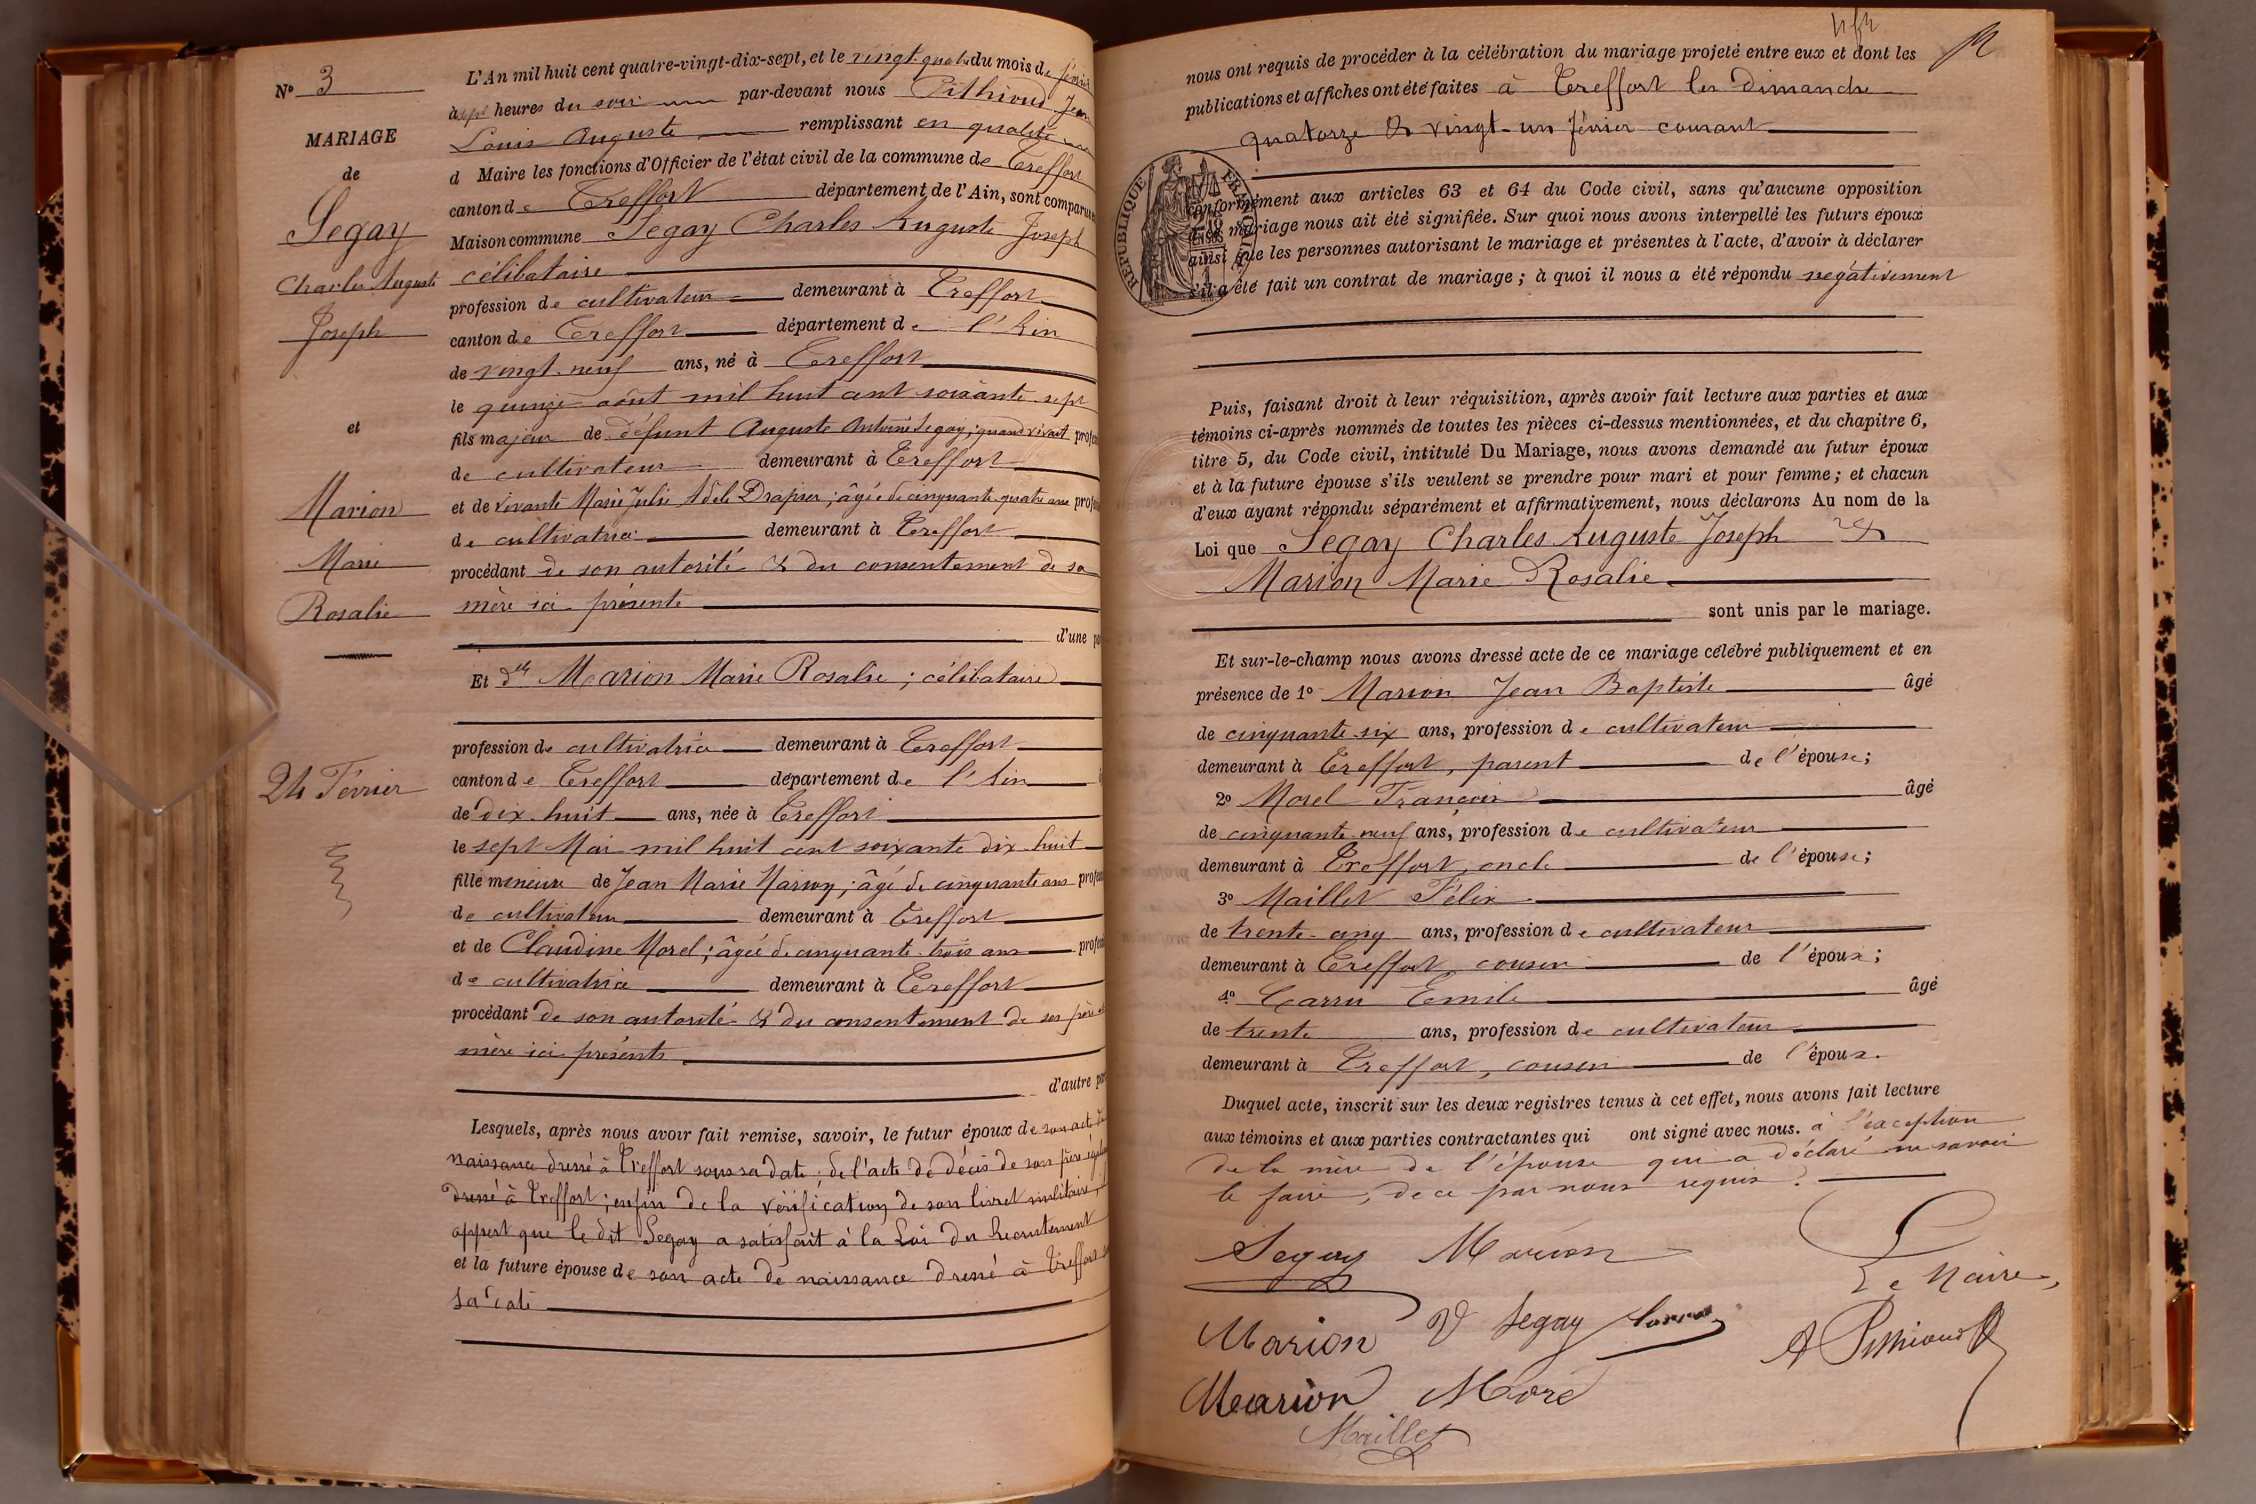 N° 3
MARIAGE
de
Segay
Charles Auguste
Joseph
et
Marion
Marie
Rosalie
24 Février
L'An mil huit cent quatre-vingt-dix-sept, et le vingt-quatre du mois de février
à sept heures du soir par-devant nous Pithioud Jean
Louis Auguste remplissant en qualité
d Maire les fonctions d'Officier de l'état civil de la commune de Treffort
canton de Treffort département de l'Ain, sont comparus
Maison commune Segay Charles Auguste Joseph
célibataire
profession de cultivateur demeurant à Treffort
canton de Treffort département de l'Ain
de vingt-neuf ans, né à Treffort
le quinze août mil huit cent soixante-sept
fils majeur de défunt Auguste Antoine Segay; quand vivait
de cultivateur demeurant à Treffort
et de vivante Marie Julie Adèle Drapier; âgée de cinquante-quatre ans
de cultivatrice demeurant à Treffort
procédant de son autorité & du consentement de sa
mère ici présente
d'une
Et dlle Marion Marie Rosalie; célibataire
profession de cultivatrice demeurant à Treffort
canton de Treffort département de l'Ain
de dix-huit ans, née à Treffort
le sept Mai mil huit cent soixante dix-huit
fille mineure de Jean Marie Marion; âgé de cinquante ans
de cultivateur demeurant à Treffort
et de Claudine Morel; âgée de cinquante-trois ans
de cultivatrice demeurant à Treffort
procédant de son autorité & du consentement de ses père et
mère ici présents
d'autre
Lesquels, après nous avoir fait remise, savoir, le futur époux de son acte de
naissance dressé à Treffort sous sa date; de l'acte de décès de son père
dressé à Treffort; enfin de la vérification de son livret militaire,
appert que le dit Segay a satisfait à la Loi du Recrutement
et la future épouse de son acte de naissance dressé à Treffort
sa date
nous ont requis de procéder à la célébration du mariage projeté entre eux et dont les
publications et affiches ont été faites à Treffort les Dimanche
quatorze & vingt-un février courant
RÉPUBLIQUE
conformément aux articles 63 et 64 du Code civil, sans qu'aucune opposition
mariage nous ait été signifiée. Sur quoi nous avons interpellé les futurs époux
ainsi que les personnes autorisant le mariage et présentes à l'acte, d'avoir à déclarer
s'il a été fait un contrat de mariage; à quoi il nous a été répondu négativement
Puis, faisant droit à leur réquisition, après avoir fait lecture aux parties et aux
témoins ci-après nommés de toutes les pièces ci-dessus mentionnées, et du chapitre 6,
titre 5, du Code civil, intitulé Du Mariage, nous avons demandé au futur époux
et à la future épouse s'ils veulent se prendre pour mari et pour femme; et chacun
d'eux ayant répondu séparément et affirmativement, nous déclarons Au nom de la
Loi que Segay Charles Auguste Joseph &
Marion Marie Rosalie
sont unis par le mariage.
Et sur-le-champ nous avons dressé acte de ce mariage célébré publiquement et en
présence de 1° Marion Jean Baptiste âgé
de cinquante-six ans, profession de cultivateur
demeurant à Treffort, parent de l'épouse;
2° Morel François âgé
de cinquante-neuf ans, profession de cultivateur
demeurant à Treffort, oncle de l'épouse;
3° Maillet Félix
de trente-cinq ans, profession de cultivateur
demeurant à Treffort, cousin de l'époux;
4° Carru Emile âgé
de trente ans, profession de cultivateur
demeurant à Treffort, cousin de l'époux.
Duquel acte, inscrit sur les deux registres tenus à cet effet, nous avons fait lecture
aux témoins et aux parties contractantes qui ont signé avec nous. à l'exception
de la mère de l'épouse qui a déclaré ne savoir
le faire, de ce par nous requis.
Segay Marion
Le Maire,
Marion V Segay Carru
A Pithioud
Marion Morel
Maillet